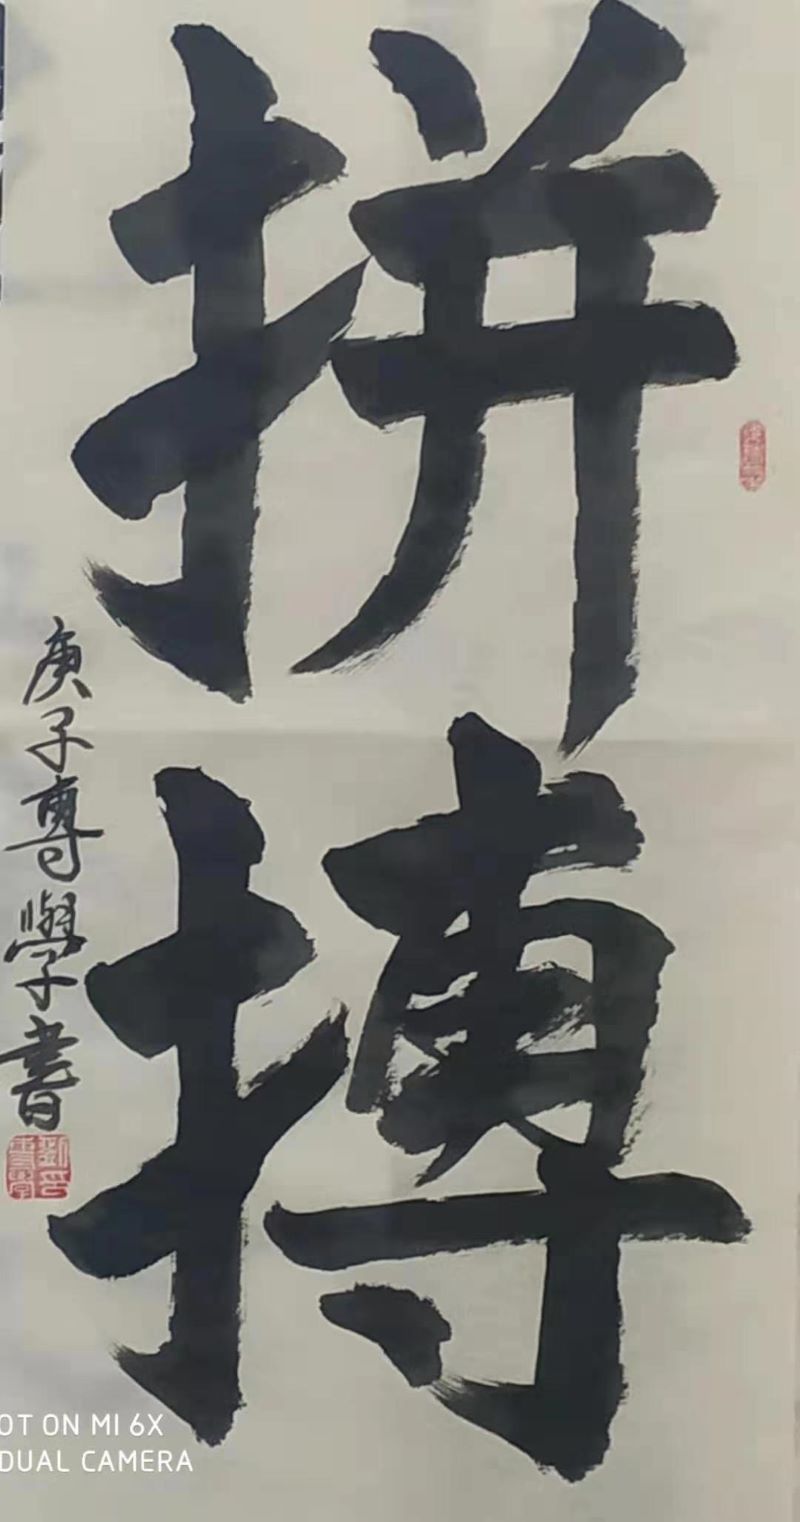 拼搏
庚子尊學書
OT ON MI 6X
DUAL CAMERA